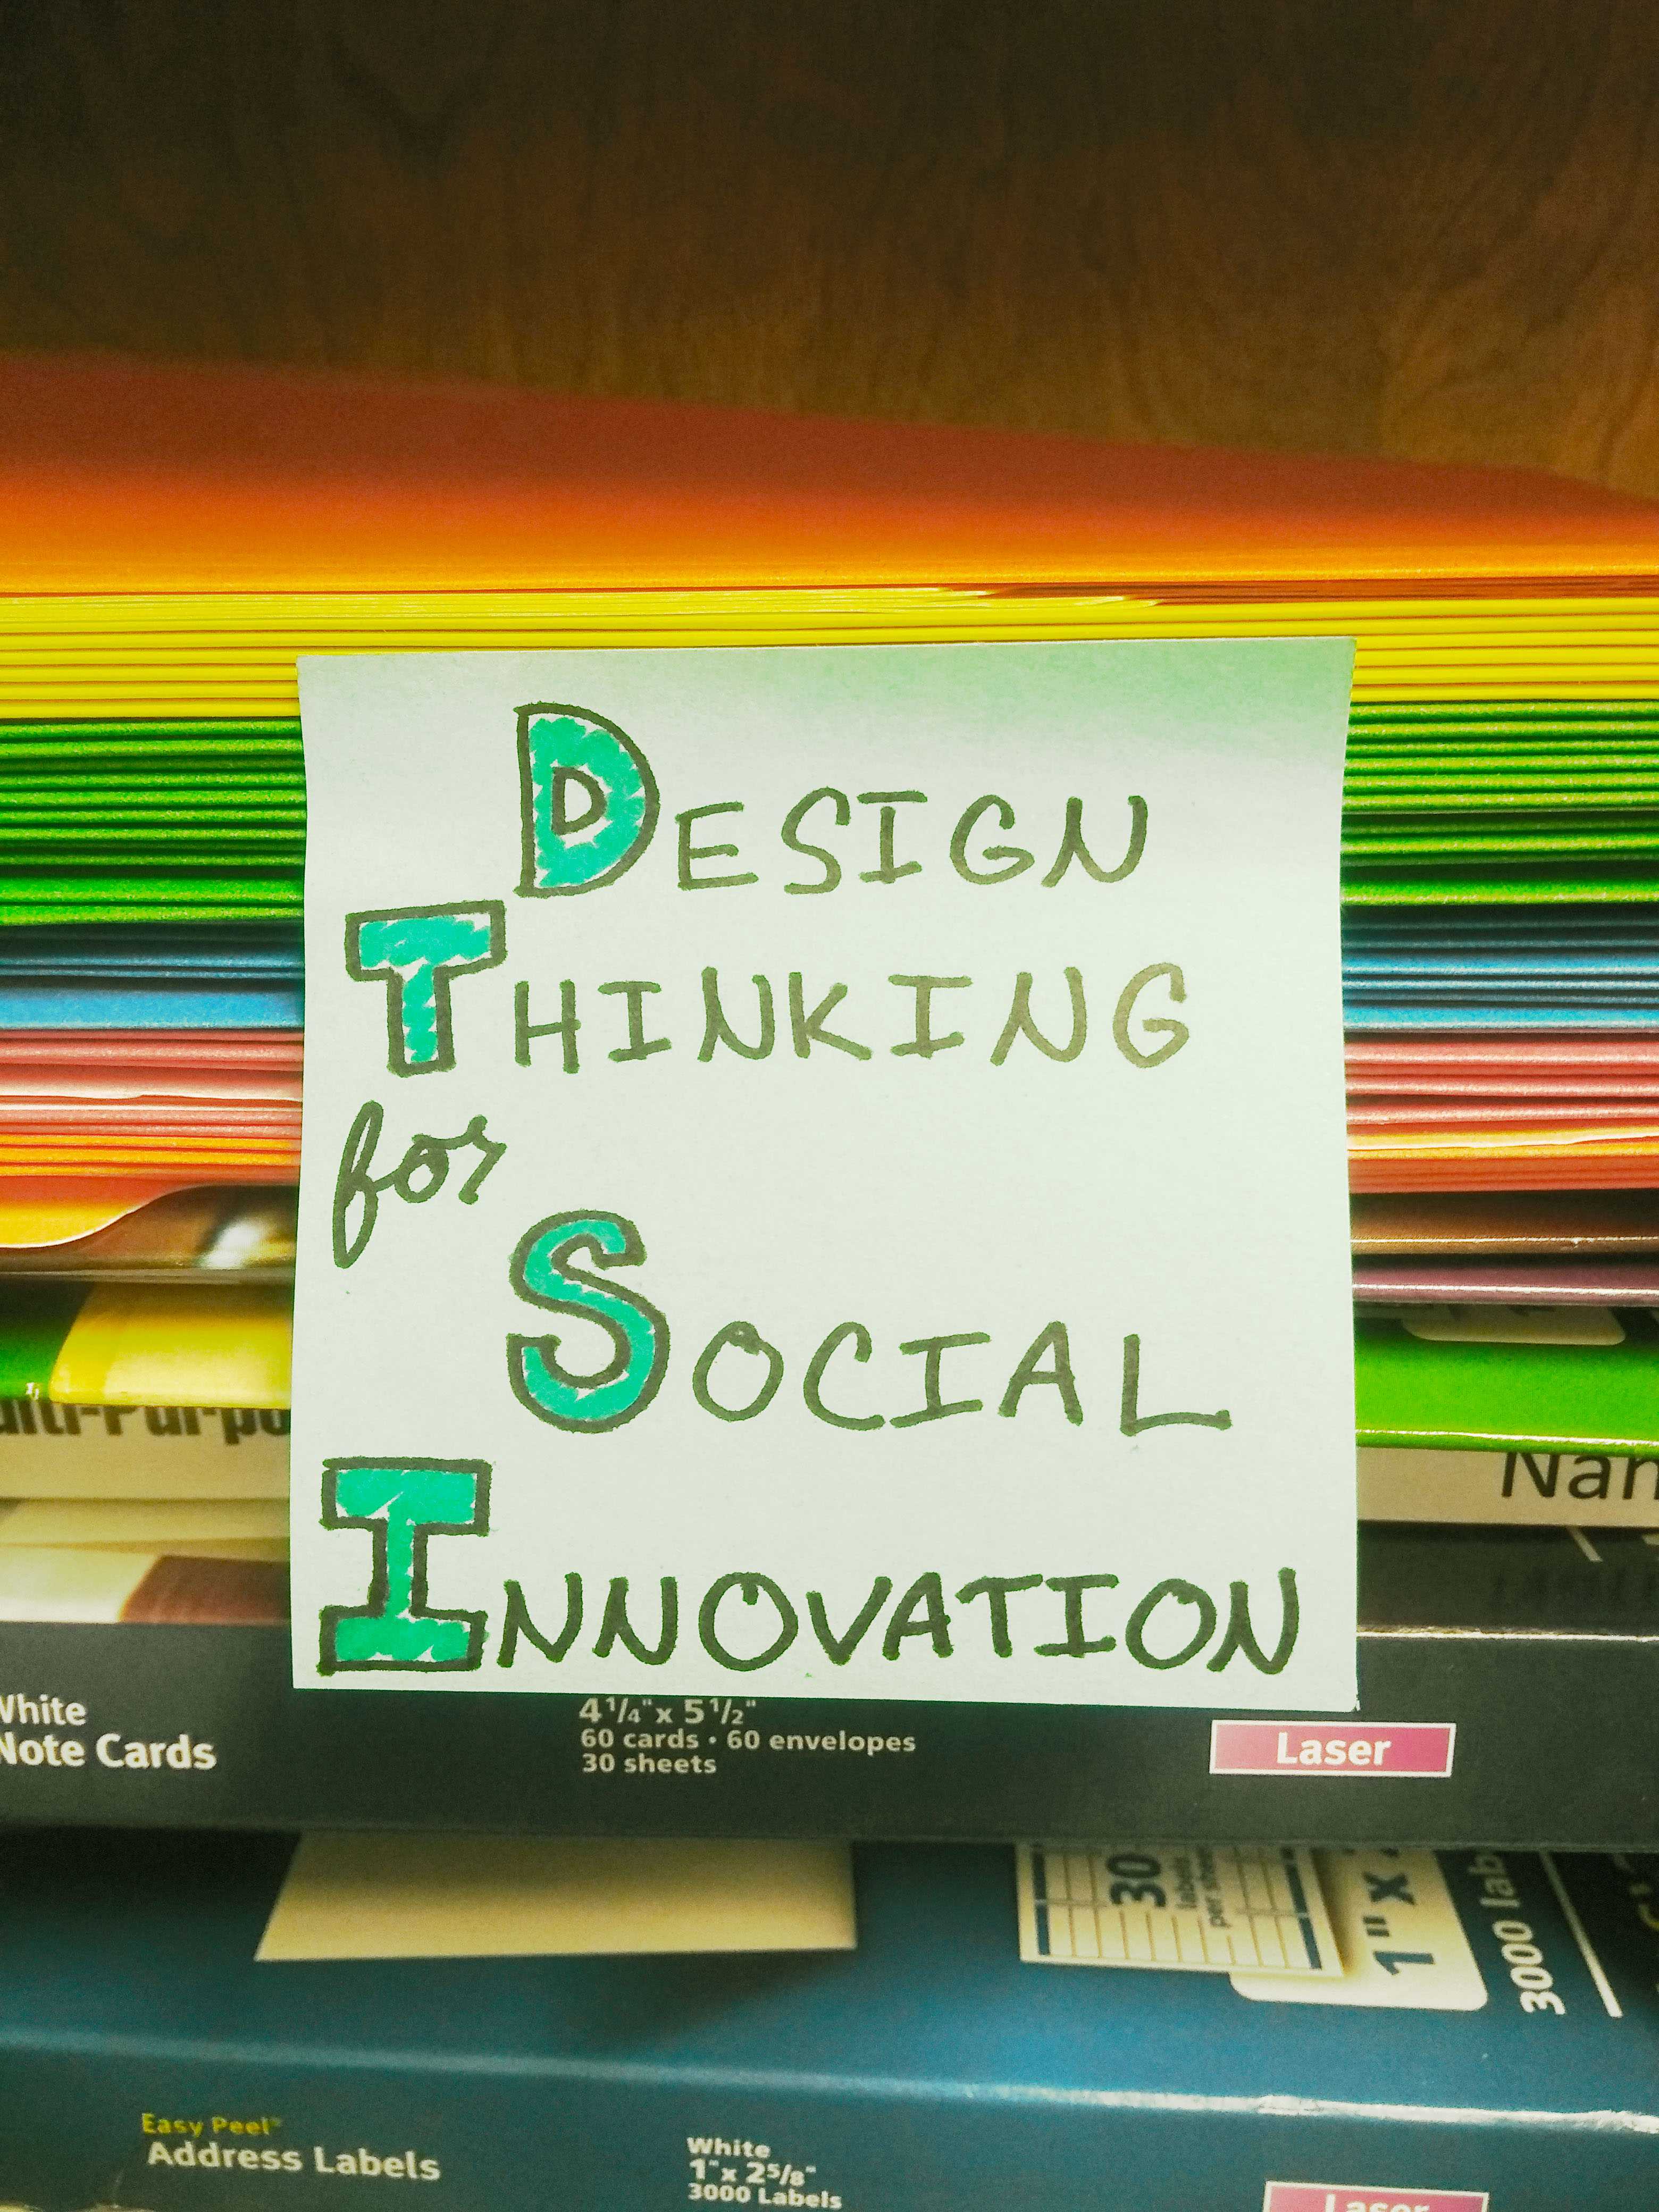 DESIGN
THINKING
for
SOCIAL
INNOVATION
White
Note Cards
4 1/4" x 5 1/2"
60 cards • 60 envelopes
30 sheets
Laser
30
labels
per sheet
1" x
3000
Easy Peel®
Address Labels
White
1" x 2 5/8"
3000 Labels
Laser